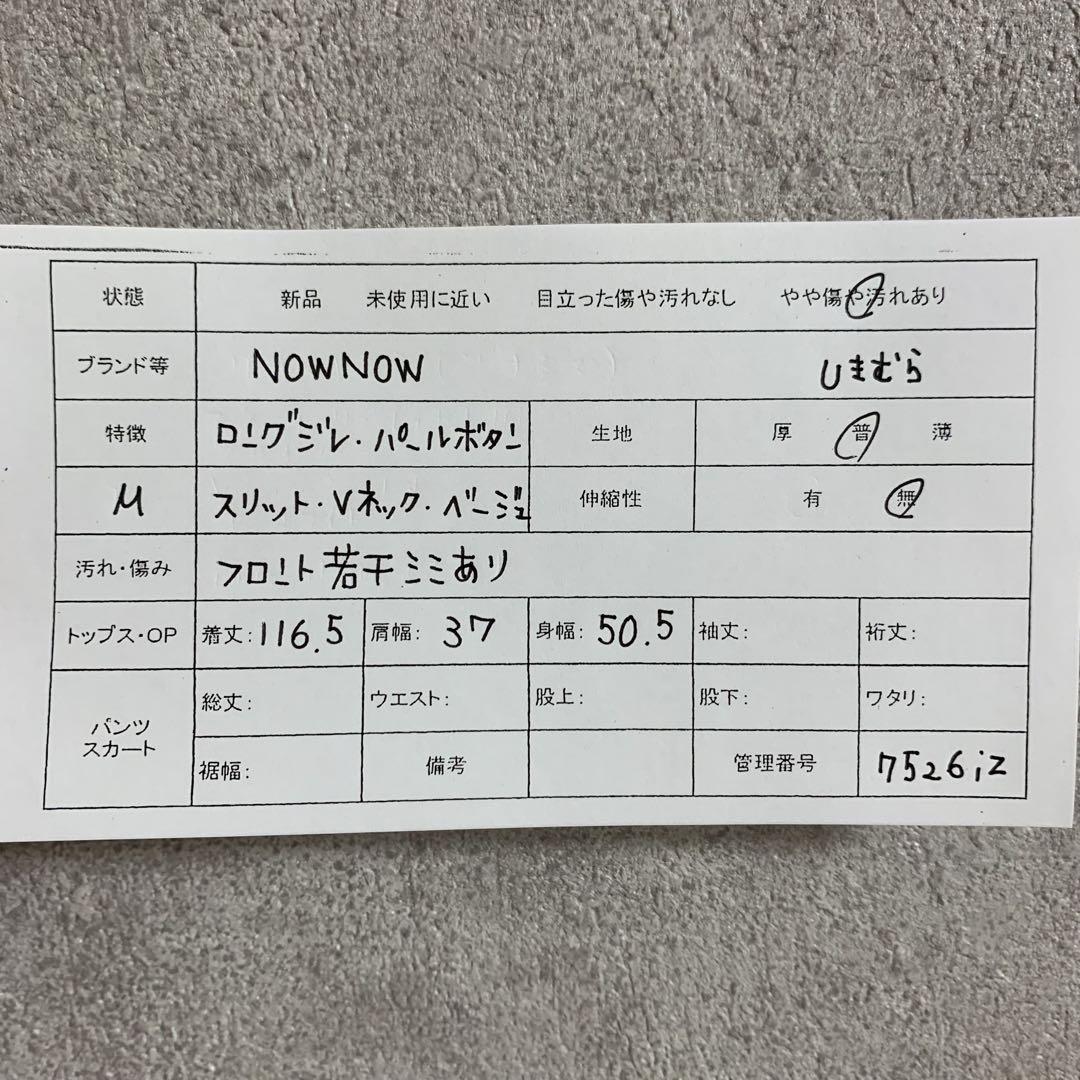 状態 新品 未使用に近い 目立った傷や汚れなし やや傷や汚れあり
ブランド等 NOWNOW しまむら
特徴 ロングジレ・パールボタン 生地 厚 普 薄
M スリット・Vネック・ベージュ 伸縮性 有 無
汚れ・傷み フロント若干シミあり
トップス・OP 着丈:116.5 肩幅: 37 身幅: 50.5 袖丈: 裄丈:
パンツ
スカート
総丈: ウエスト: 股上: 股下: ワタリ:
裾幅: 備考 管理番号 7526iz